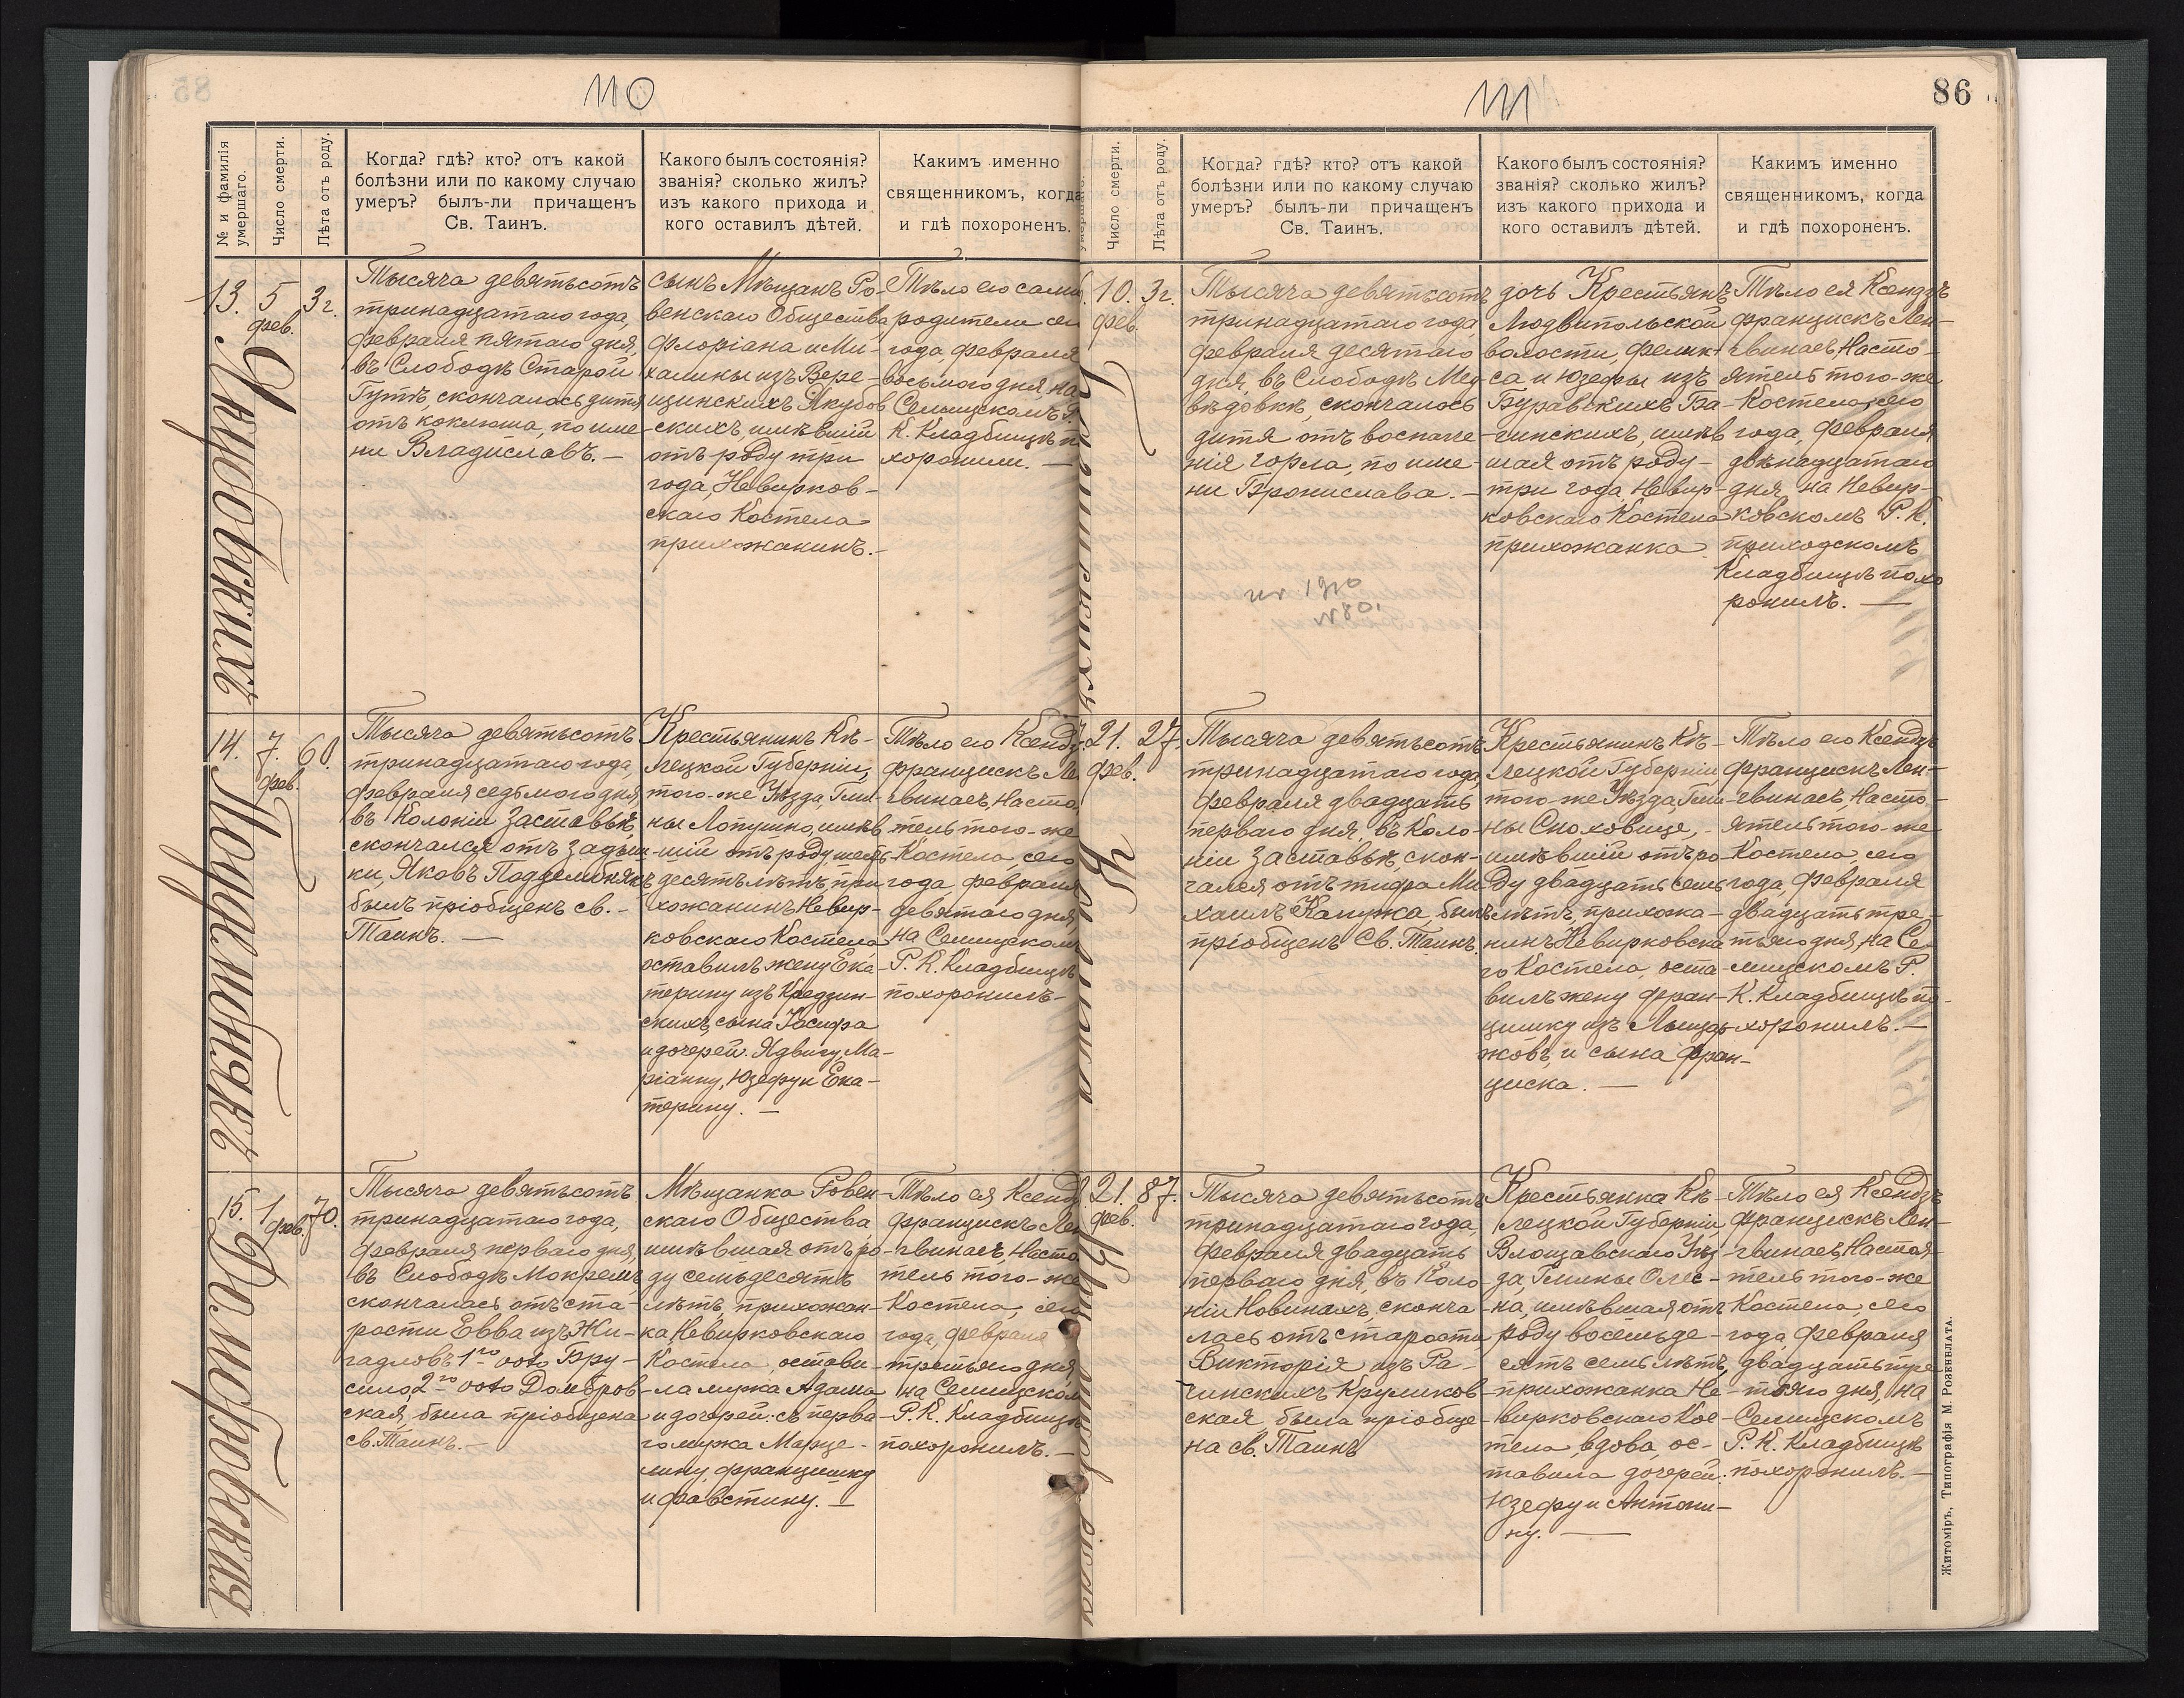 110
№ и фамилія умершаго.
Число смерти.
Лѣта отъ роду.
Когда? гдѣ? кто? отъ какой
болѣзни или по какому случаю
умеръ? былъ-ли причащенъ
Св. Таинъ.
Какого былъ состоянія?
званія? сколько жилъ?
изъ какого прихода и
кого оставилъ дѣтей.
Какимъ именно
священникомъ, когда
и гдѣ похороненъ.
13.
5
фев.
3 г.
Якубовскихъ
Тысяча девятьсотъ
тринадцатаго года,
февраля пятаго дня,
въ Слободѣ Старой
Гутѣ, скончалось дитя
отъ коклюша, по име-
ни Владиславъ. —
сынъ Мѣщанъ Ро-
венскаго Общества
Флоріана и Ми-
халины изъ Вере-
щинскихъ Якубов
скихъ, имѣвшій
отъ роду три
года, Невирков-
скаго Костела
прихожанинъ. —
Тѣло его сами
родители сего
года, февраля
восьмого дня, на
Селищскомъ Р.
К. Кладбищѣ по
хоронили. —
14.
7.
фев.
60.
Тысяча девятьсотъ
тринадцатаго года,
февраля седьмого дня,
въ Колоніи Заставьѣ,
скончался отъ задыш-
ки, Яковъ Подзембнякъ
былъ пріобщенъ св. -
Таинъ. —
Крестьянинъ Кѣ-
лецкой Губерніи,
того-же Уѣзда, Гми-
ны Лопушно, имѣв
шій отъ роду шесть-
десятъ лѣтъ, при
хожанинъ Невир-
ковскаго Костела
оставилъ жену Ека-
терину изъ
скихъ, сына Іосифа
и дочерей: Ядвигу, Ма-
ріанну, Юзефу и Ека-
терину. —
Тѣло его Ксендзъ
Францискъ Лен-
гвинасъ, Настоя
тель того-же
Костела, сего
года, февраля
девятаго дня,
на Селищскомъ
Р. К. Кладбищѣ
похоронилъ -
15.
1
фев.
70.
Домбровская
Тысяча девятьсотъ
тринадцатаго года,
февраля перваго дня,
въ Слободѣ Мокремъ
скончалась отъ ста-
рости Евва изъ Жи-
гадловъ 1го voto Бру-
сило, 2го voto Домбров
ская, была пріобщена
св. Таинъ. —
Мѣщанка Ровен
скаго Общества,
имѣвшая отъ ро
ду семьдесятъ
лѣтъ, прихожан-
ка Невирковскаго
Костела остави-
ла мужа Адама
и дочерей: съ перва-
го мужа Марце-
лину, Францишку
и Фавстину. —
Тѣло ея Ксендзъ
Францискъ Лен
гвинасъ, Настоя
тель того-же
Костела, сего
года, февраля
третьяго дня,
на Селищскомъ
Р. К. Кладбищѣ
похоронилъ. —
111
86
Число смерти.
Лѣта отъ роду.
Когда? гдѣ? кто? отъ какой
болѣзни или по какому случаю
умеръ? былъ-ли причащенъ
Св. Таинъ.
Какого былъ состоянія?
званія? сколько жилъ?
изъ какого прихода и
кого оставилъ дѣтей.
Какимъ именно
священникомъ, когда
и гдѣ похороненъ.
10.
фев.
3 г.
Тысяча девятьсотъ
тринадцатаго года,
февраля десятаго
дня, въ Слободѣ Мед-
вѣдовкѣ, скончалось
дитя отъ воспале-
нія горла, по име-
ни Бронислава. -
ur 1910
N 80.
дочь Крестьянъ
Людвипольской
волости, Фелик-
са и Юзефы изъ
Буравскихъ Ба-
чинскихъ, имѣв
шая отъ роду -
три года, Невир-
ковскаго Костела
прихожанка
Тѣло ея Ксендзъ
Францискъ Лен-
гвинасъ, Насто-
ятель того-же
Костела, сего
года, февраля
двѣнадцатаго
дня, на Невир-
ковскомъ Р. К.
приходскомъ
Кладбищѣ похо
ронилъ. —
21.
фев.
27.
Тысяча девятьсотъ
тринадцатаго года,
февраля двадцать
перваго дня, въ Коло-
ніи Заставьѣ, скон-
чался отъ тифа Ми-
хаилъ Калужа, былъ
пріобщенъ Св. Таинъ.
Крестьянинъ Кѣ-
лецкой Губерніи,
того-же Уѣзда, Гми
ны Снохо­вице, -
имѣвшій отъ ро-
ду двадцать семь
лѣтъ, прихожа-
нинъ Невирковска
го Костела, оста-
вилъ жену Фран-
цишку изъ
жовъ, и сына Фран-
циска. —
Тѣло его Ксендзъ
Францискъ Лен-
гвинасъ, Насто-
ятель того-же
Костела, сего
года, февраля
двадцать тре-
тьяго дня, на Се-
лищскомъ Р.
К. Кладбищѣ по-
хоронилъ. —
21.
фев.
87.
Тысяча девятьсотъ
тринадцатаго года,
февраля двадцать
перваго дня, въ Коло-
ніи Новинахъ, сконча-
лась отъ старости
Викторія изъ Ра-
чинскихъ Круликов
ская, была пріобще-
на св. Таинъ
Крестьянка Кѣ-
лецкой Губерніи,
Влощавскаго Уѣз-
да, Гмины Олес-
на, имѣвшая отъ
роду восемьде-
сятъ семь лѣтъ,
прихожанка Не-
вирковскаго Кос-
тела, вдова, ос-
тавила дочерей:
Юзефу и Антони-
ну. —
Тѣло ея Ксендзъ
Францискъ Лен-
гвинасъ, Настоя-
тель того-же
Костела, сего
года, февраля
двадцать тре
тьяго дня, на
Селищскомъ
Р. К. Кладбищѣ
похоронилъ. —
Житоміръ, Типографія М. Розенблата.